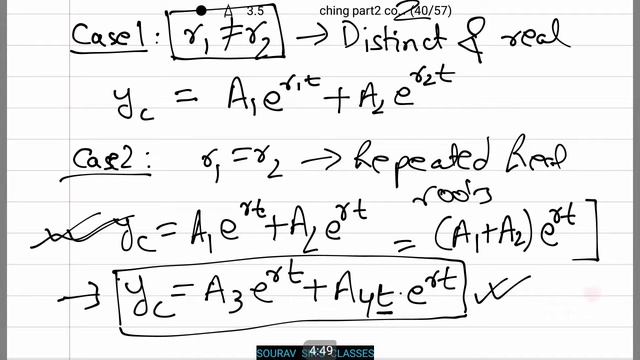 3.5 ching part2 co (40/57)
Case1: r₁ ≠ r₂ → Distinct & real
y_c = A₁e^{r₁t} + A₂e^{r₂t}
Case2: r₁ = r₂ → Repeated Real
roots
y_c = A₁e^{rt} + A₂e^{rt} = (A₁+A₂)e^{rt}]
→ y_c = A₃e^{rt} + A₄t·e^{rt} ✓
4:49
SOURAV CLASSES